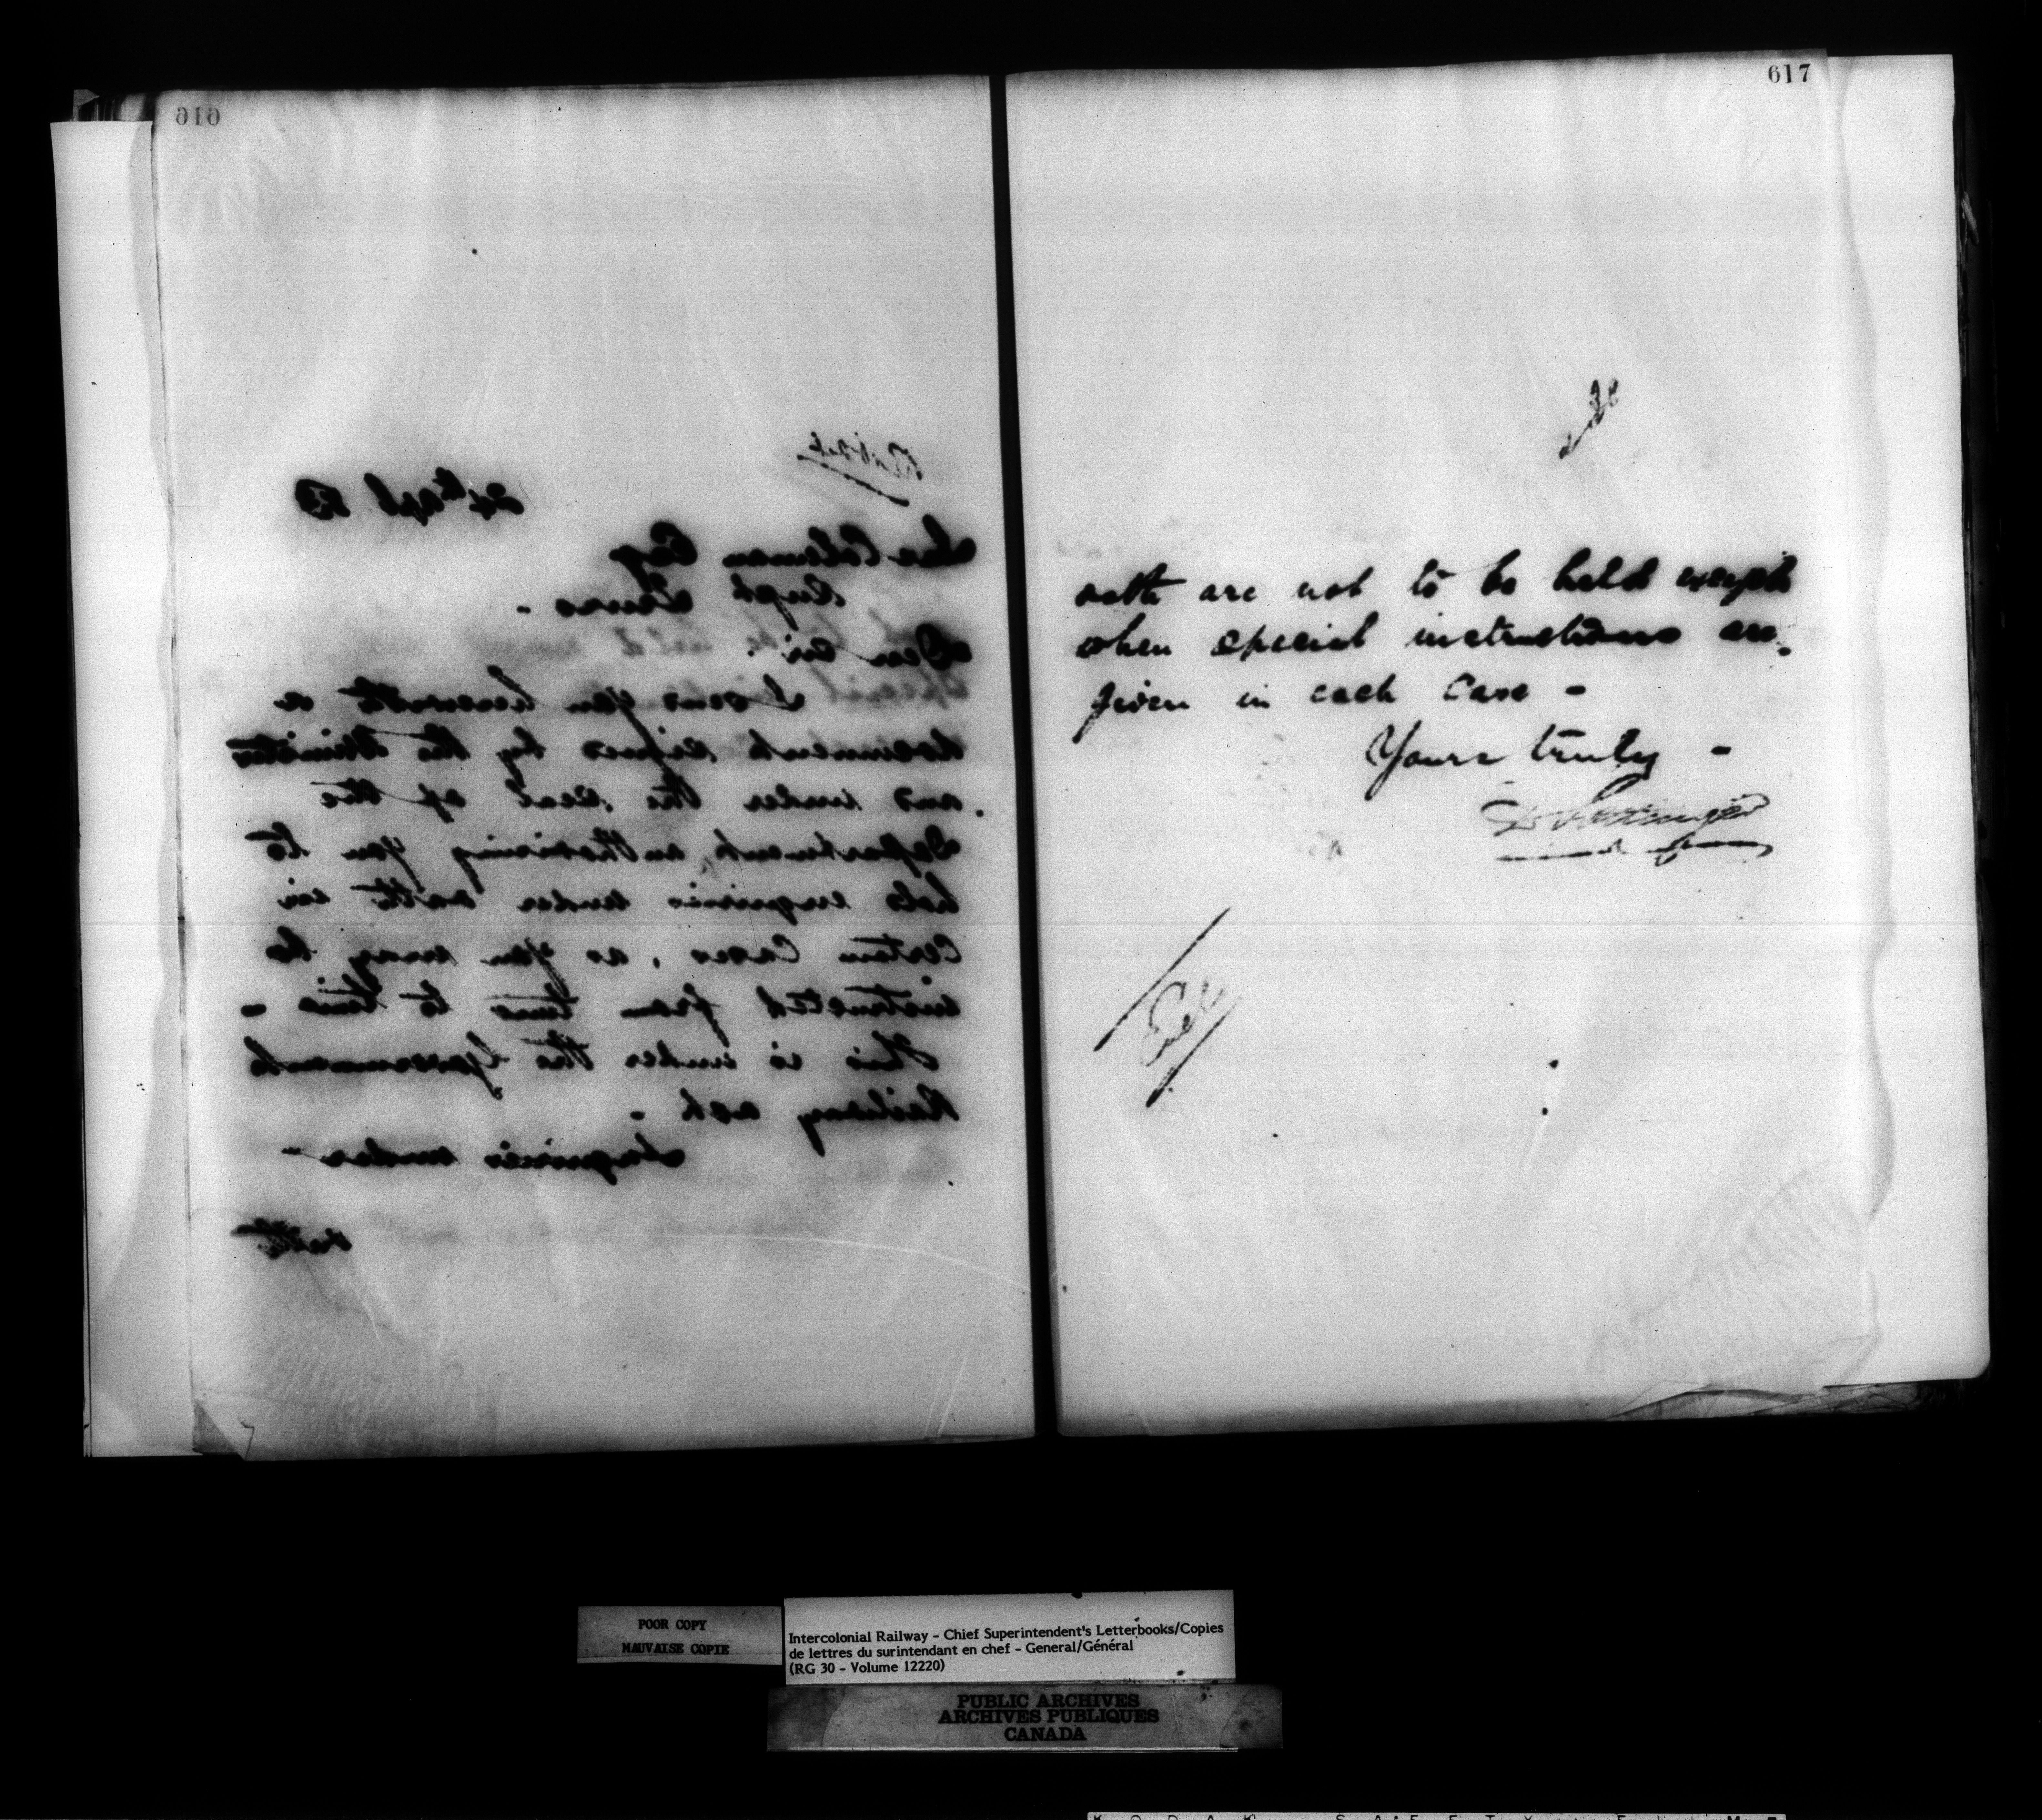 616
24th Apl 83
Coleman Esq
Supt Truro -
Dear Sir.
I send you herewith a
document signed by the Minister
and under the seal of the
Department, authorizing you to
hold enquiries under oath in
certain Cases, as you may be
instructed from time to time -
This is under the Government
Railway act -
Inquiries under -
oath
617
oath are not to be held except
when special instructions are
given in each Case -
Yours truly -
D Pottinger
POOR COPY
MAUVAISE COPIE
Intercolonial Railway - Chief Superintendent's Letterbooks/Copies
de lettres du surintendant en chef - General/Général
(RG 30 - Volume 12220)
PUBLIC ARCHIVES
ARCHIVES PUBLIQUES
CANADA